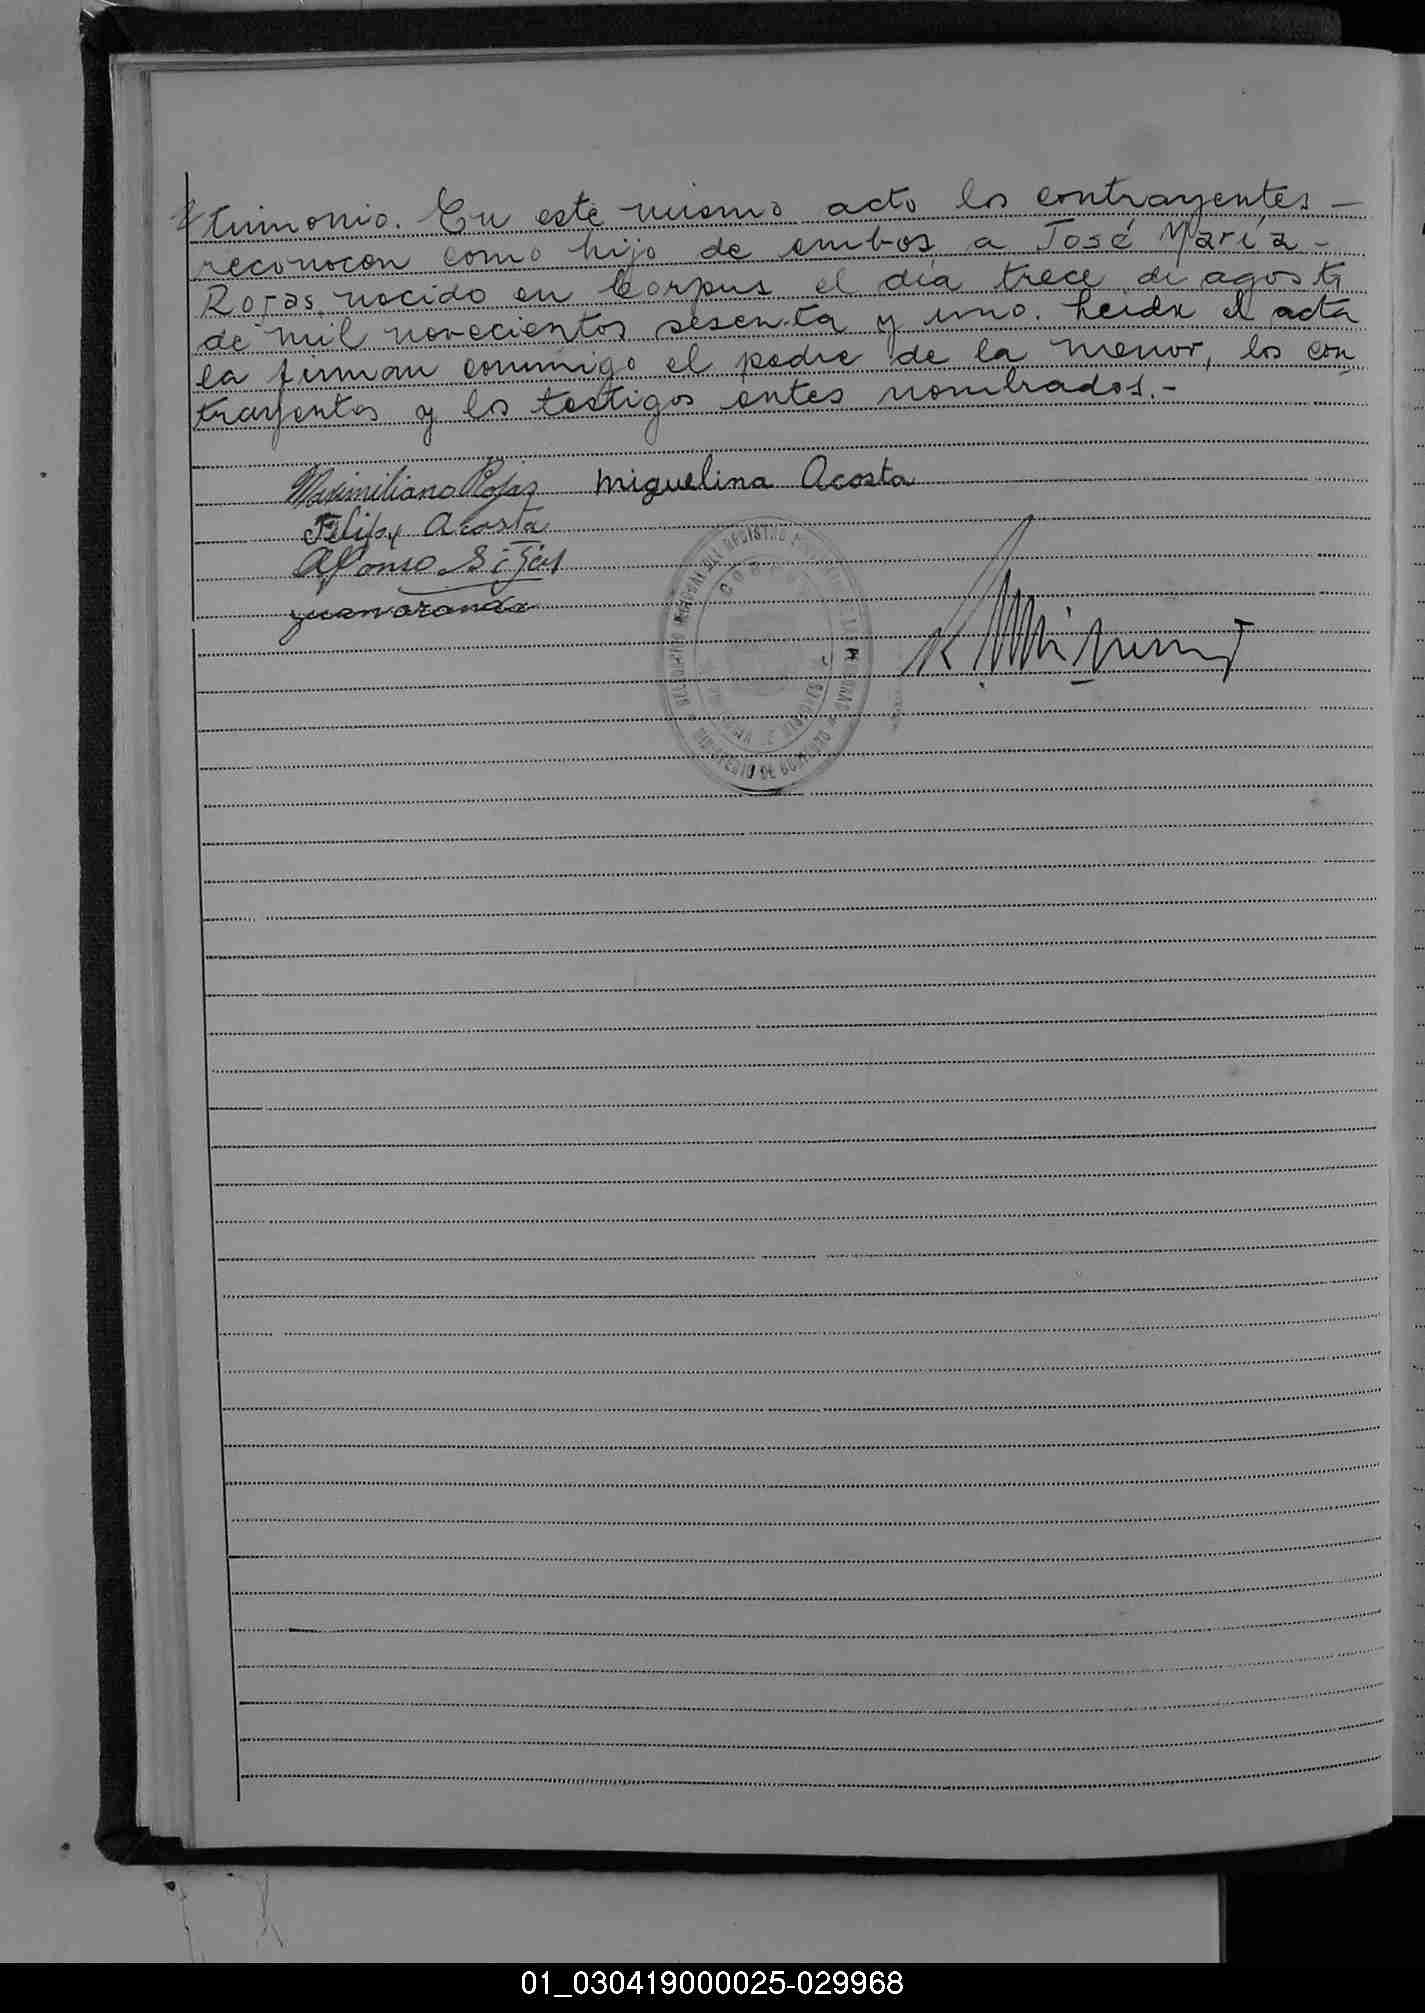 trimonio. En este mismo acto los contrayentes —
reconocen como hijo de ambos, a José María -
Rojas, nacido en Corpus el día trece de agosto
de mil novecientos sesenta y uno. Leída el acta
la firman conmigo el padre de la menor, los con
trayentes y los testigos antes nombrados.-
Maximiliano Rojas Miguelina Acosta
Felipe Acosta
Alfonso
Juan Aranda
CORPUS
MINISTERIO DE GOBIERNO
01_030419000025-029968